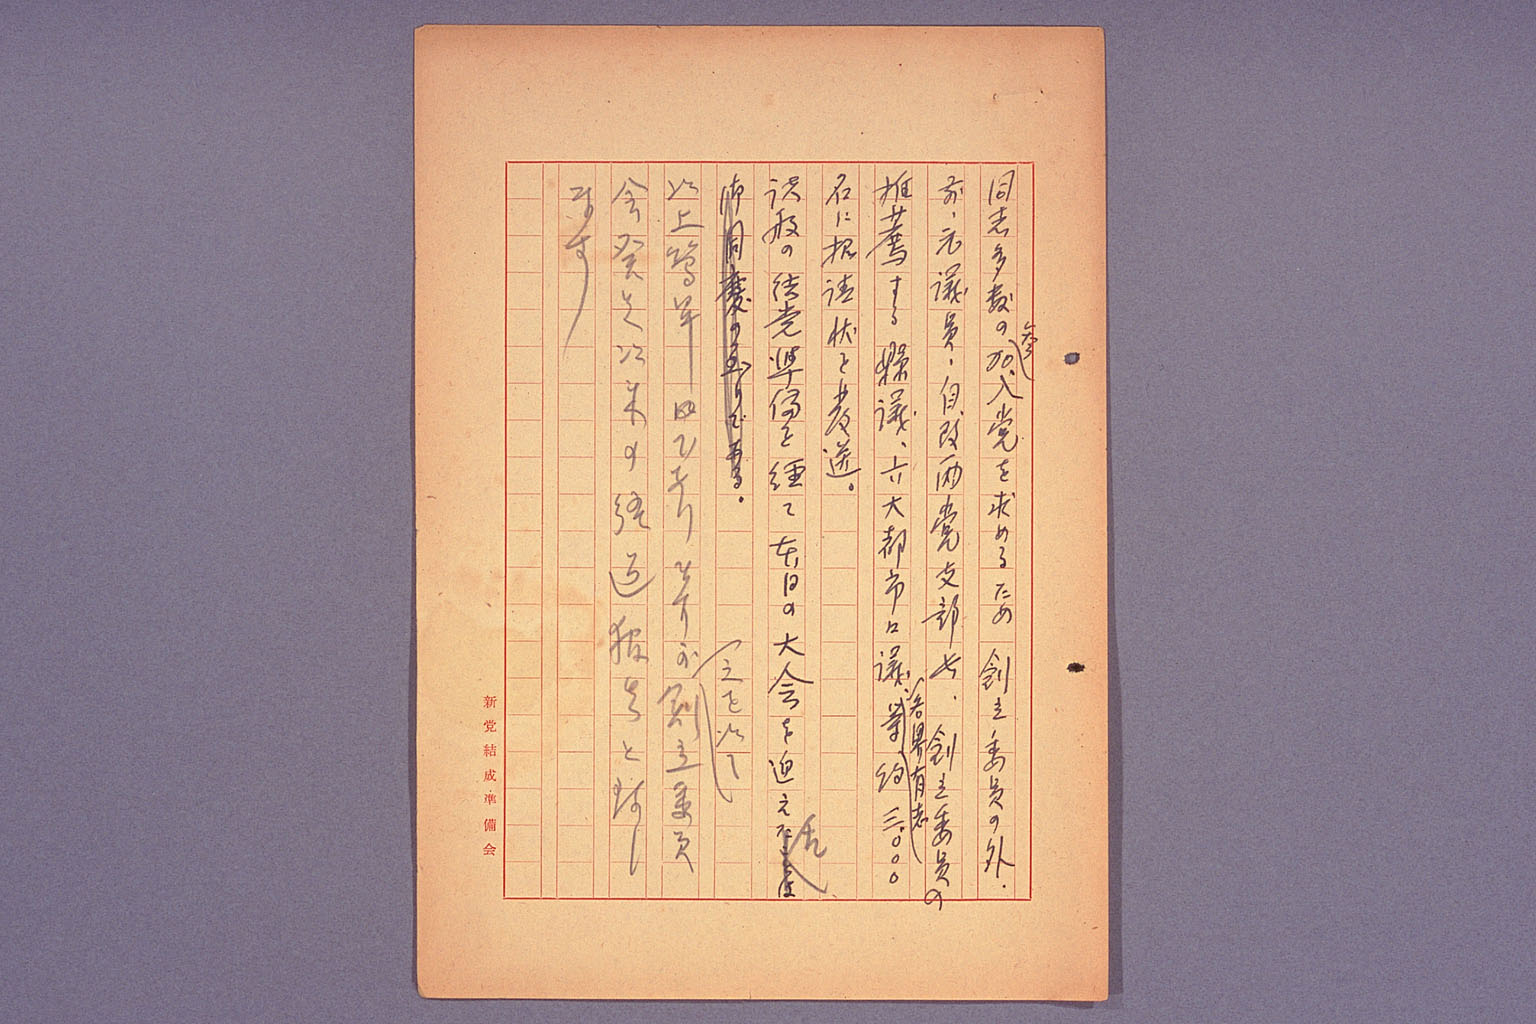 同志多数の参加、入党を求めるため創立委員の外、
前、元議員、自改両党支部長、創立委員の
推薦する県議、六大都市口議、各界有志約三、〇〇〇
名に招請状を発送。
諸般の結党準備を経て本日の大会を迎えた
御同慶の至りである。
之を以て
以上簡単ではありますが創立委員
会発足以来の経過報告と致し
ます
新党結成準備会